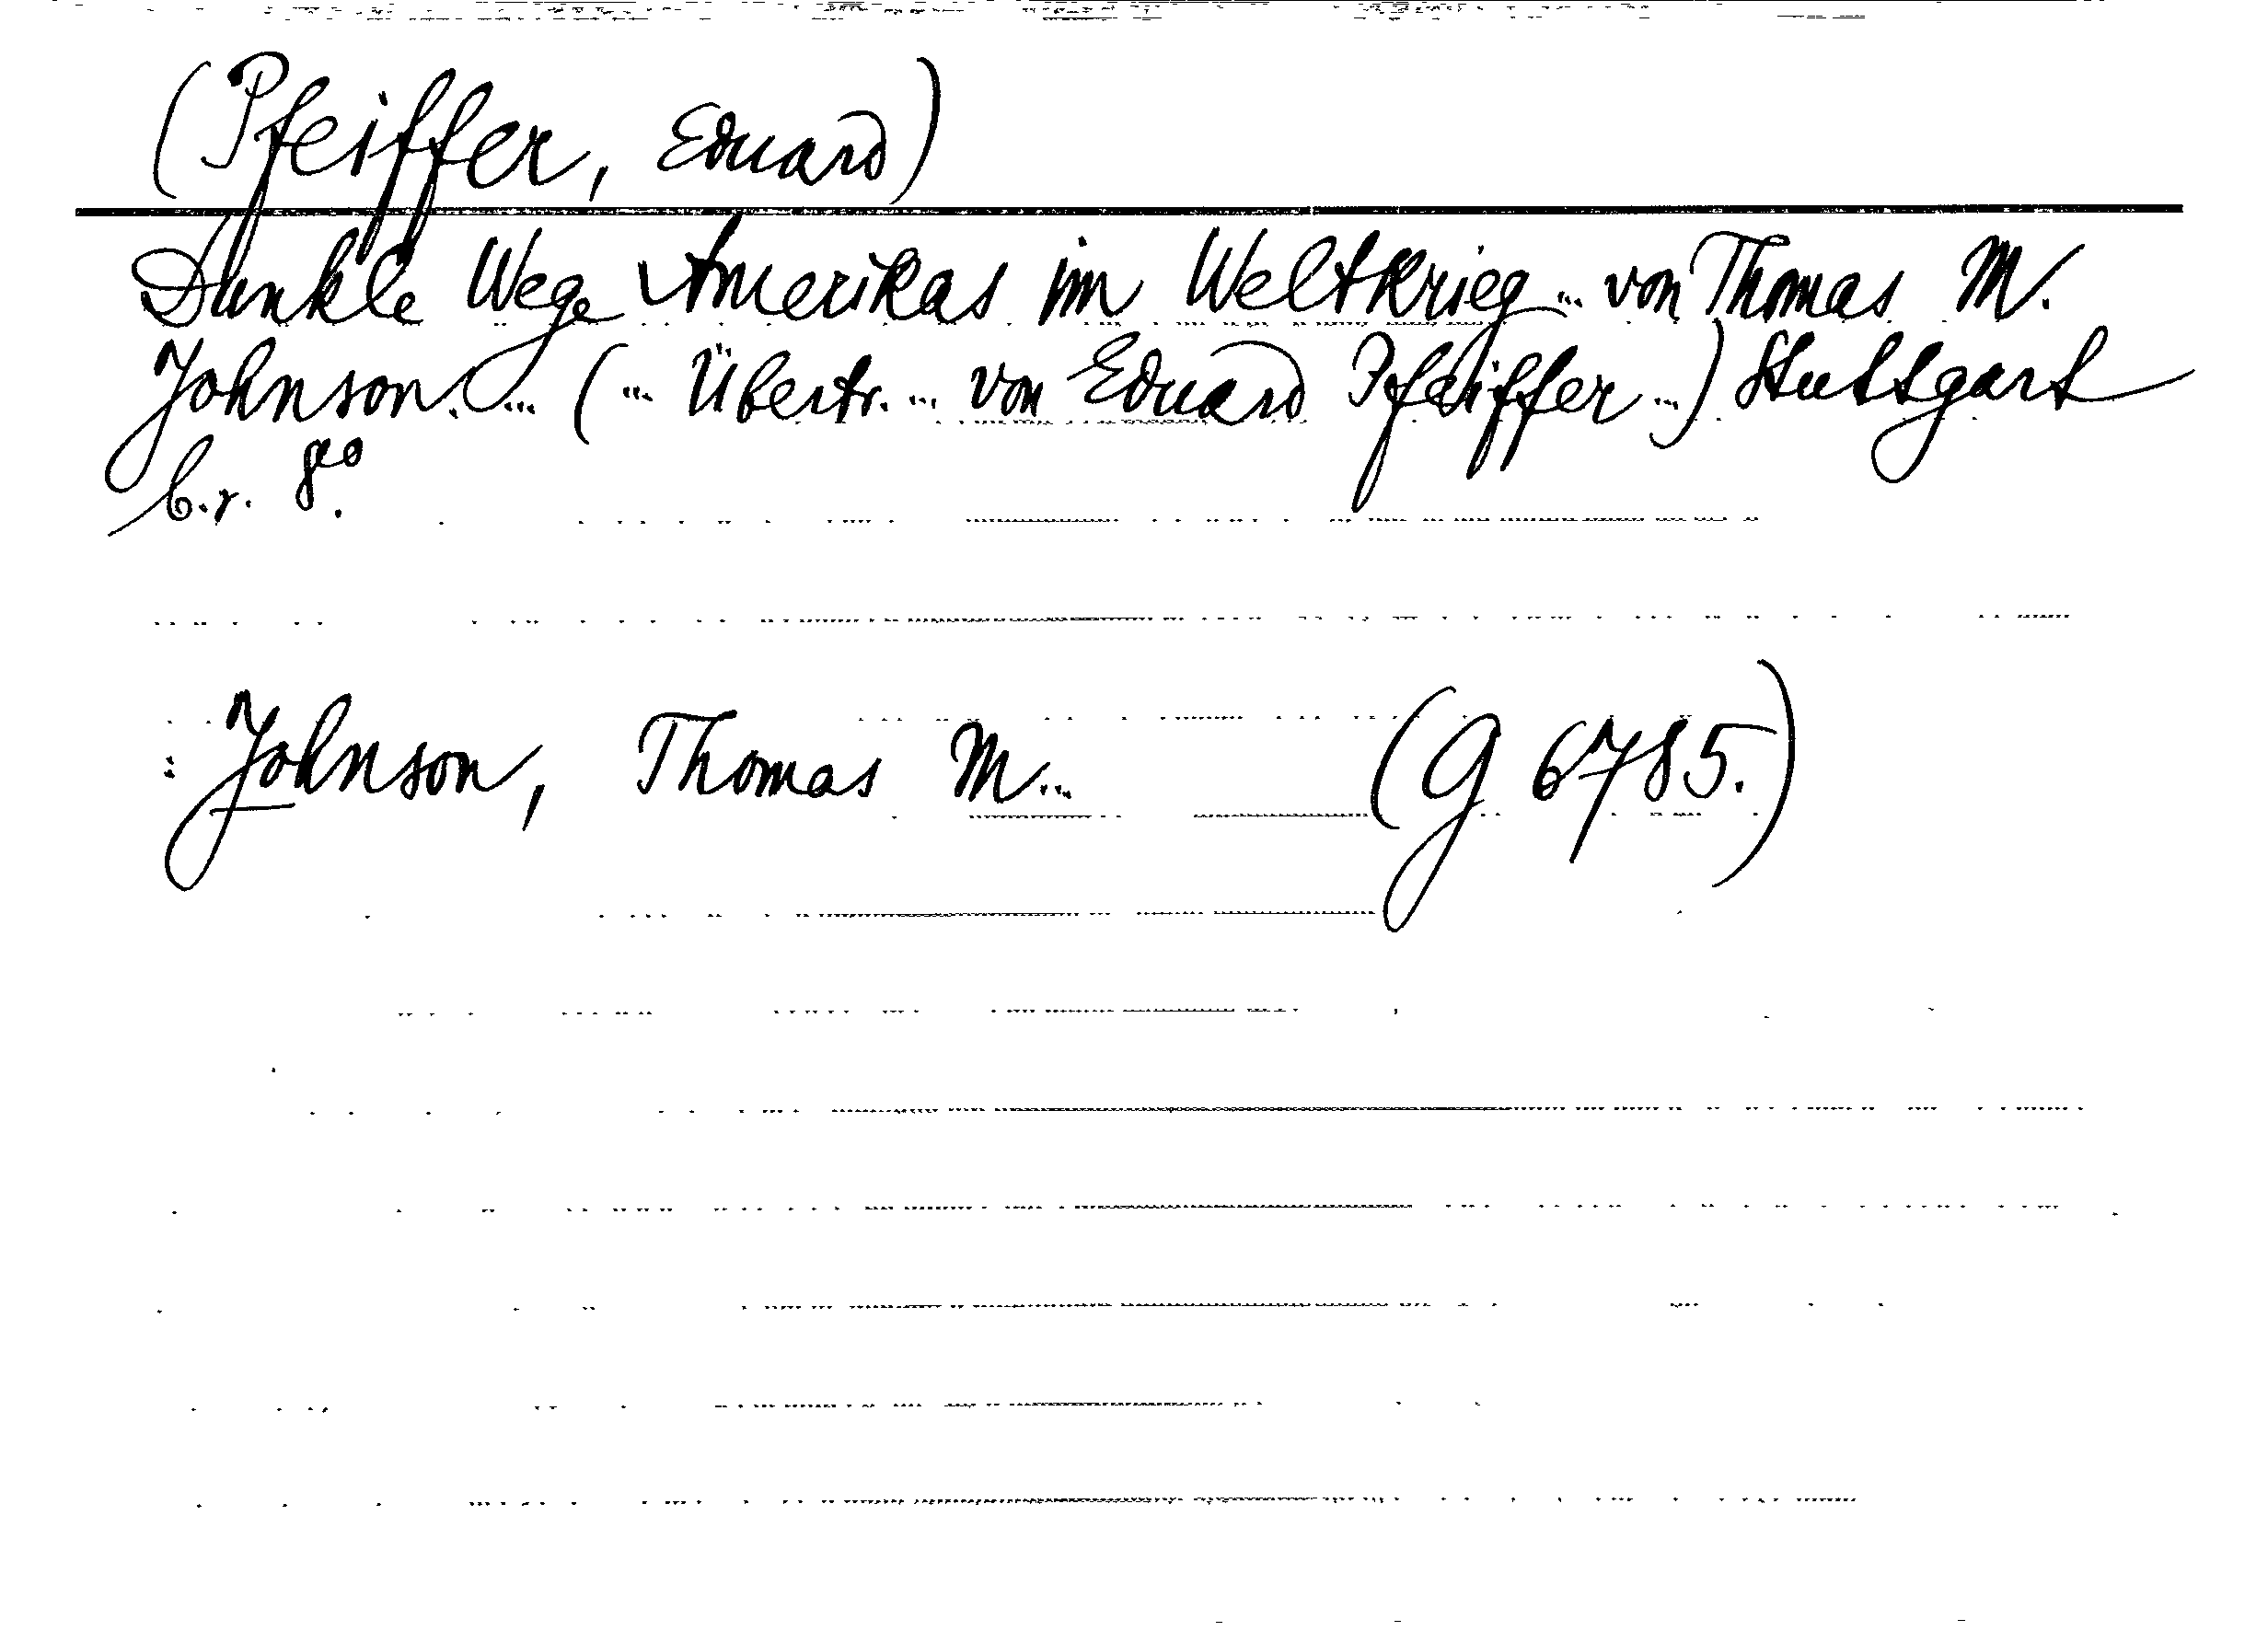 (Pfeiffer, Eduard)
Dunkle Wege Amerikas im Weltkrieg ... von Thomas M.
Johnson. ... (... Übertr. ... von Eduard Pfeiffer ...) Stuttgart
8°.
: Johnson, Thomas M... (G 6785.)